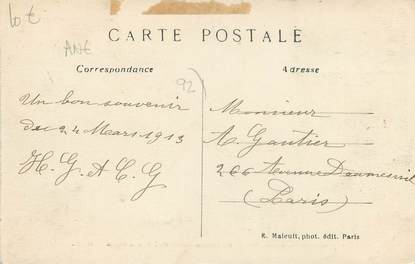 10 €
ANE
CARTE POSTALE
Correspondance
Adresse
92
Un bon souvenir
du 24 Mars 1913
H. G. A. C. G
Monsieur
A. Gautier
266 Avenue Daumesnil
(Paris)
R. Maleuit, phot. édit. Paris